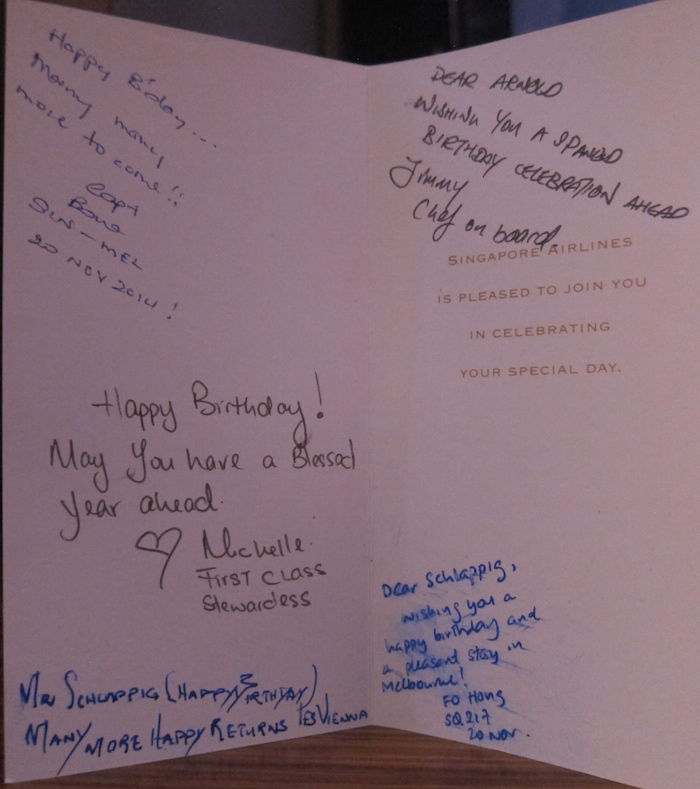 Happy B'day...
Many many
more to come!!
Capt
SIN - MEL
20 NOV 2014!
Happy Birthday!
May You have a Blessed
Year ahead.
Michelle.
First Class
Stewardess
MR SCHLAPPIG (HAPPY BIRTHDAY)
MANY MORE HAPPY RETURNS
DEAR ARNOLD
WISHING YOU A
BIRTHDAY CELEBRATION AHEAD
Jimmy
Chef on board.
SINGAPORE AIRLINES
IS PLEASED TO JOIN YOU
IN CELEBRATING
YOUR SPECIAL DAY.
Dear Schlappig,
wishing you a
happy birthday and
a pleasant stay in
Melbourne!
FO Hong
SQ217
20 Nov.